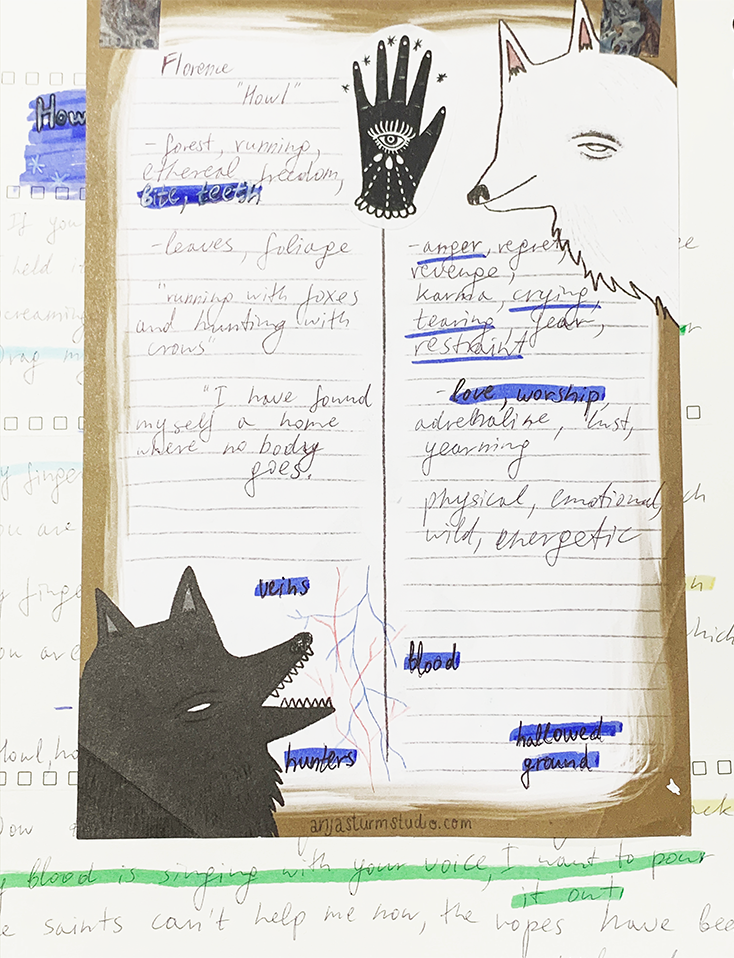 Florence
"Howl"
- forest, running,
ethereal freedom,
bite, teeth
- leaves, foliage
"running with foxes
and hunting with
crows"
"I have found
myself a home
where no body
goes.
veins
hunters
- anger, regret,
revenge,
karma, crying,
tearing, fear,
restraint
- love, worship,
adrenaline, lust,
yearning
physical, emotional,
wild, energetic
blood
hallowed
ground
anjasturmstudio.com
How
If you
held
screaming
drag
finge
you are
finge
you are
Howl, ho
which
blood is singing with your voice, I want to pour
it out,
saints can't help me now, the ropes have bee